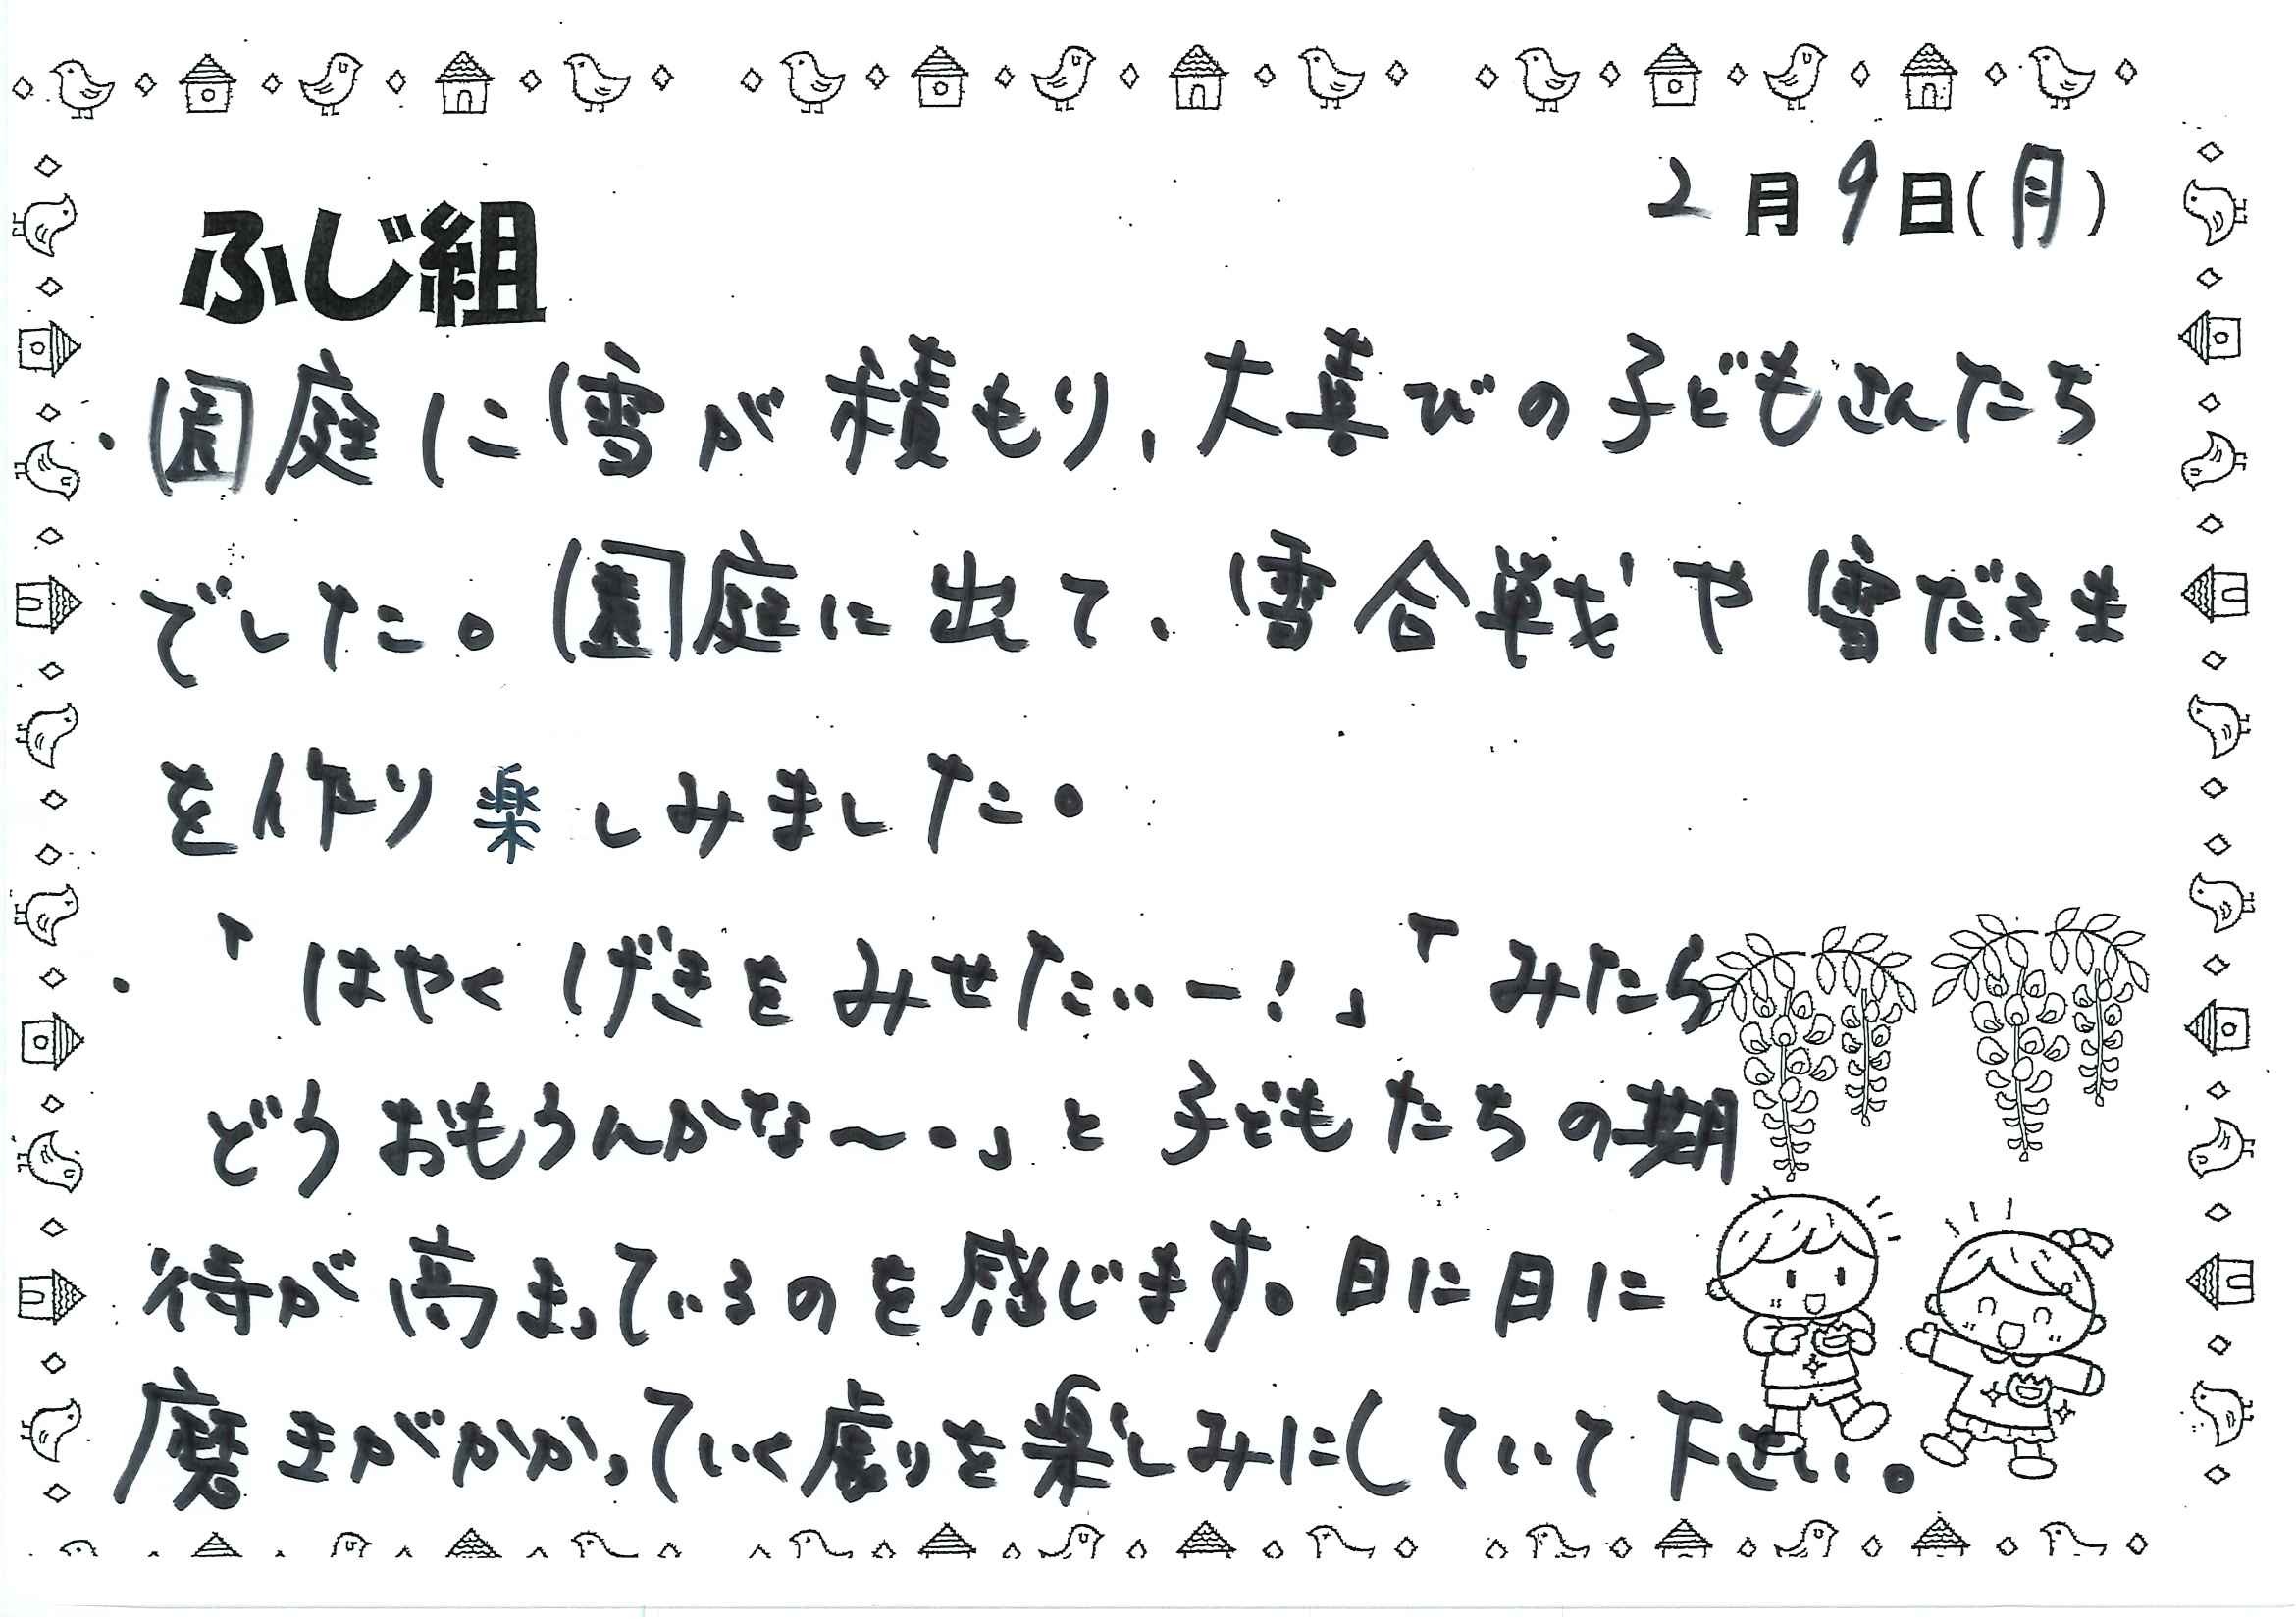 2月9日(月)
ふじ組
・園庭に雪が積もり、大喜びの子どもさんたち
でした。園庭に出て、雪合戦や雪だるま
を作り楽しみました。
・「はやくげきをみせたいー!」「みたら
どうおもうんかな〜。」と子どもたちの期
待が高まっているのを感じます。日に日に
磨きがかかっていく劇を楽しみにしていて下さい。